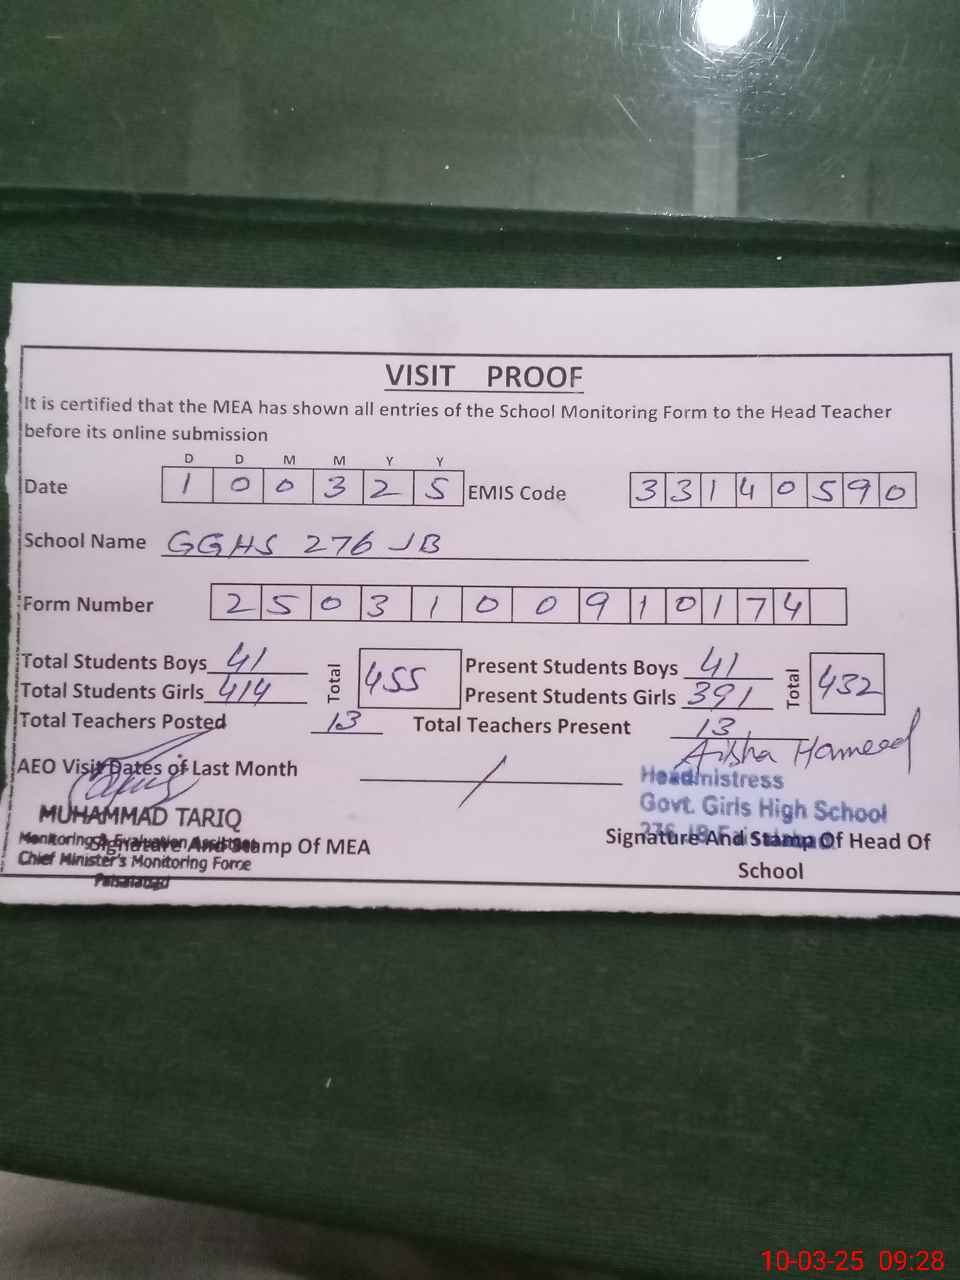 VISIT PROOF
It is certified that the MEA has shown all entries of the School Monitoring Form to the Head Teacher
before its online submission
D D M M Y Y
Date 1 0 0 3 2 5 EMIS Code 3 3 1 4 0 5 9 0
School Name GGHS 276 JB
Form Number 2 5 0 3 1 0 0 9 1 0 1 7 4
Total Students Boys 41 Total 455 Present Students Boys 41 Total 432
Total Students Girls 414 Present Students Girls 391
Total Teachers Posted 13 Total Teachers Present 13
AEO Visit Dates of Last Month / Aisha Hameed
Headmistress
Govt. Girls High School
276 JB Faisalabad
MUHAMMAD TARIQ
Monitoring & Evaluation Assistant
Chief Minister's Monitoring Force
Faisalabad
Signature And Stamp Of MEA
Signature And Stamp Of Head Of
School
10-03-25 09:28